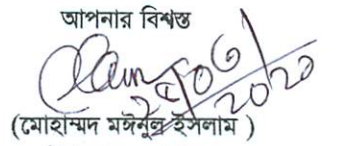 আপনার বিশ্বস্ত
(মোহাম্মদ মঈনুল ইসলাম )